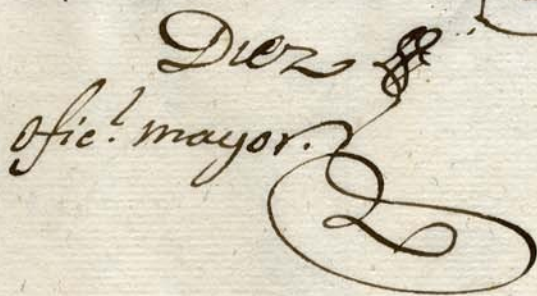 Diez
ofic.l mayor.